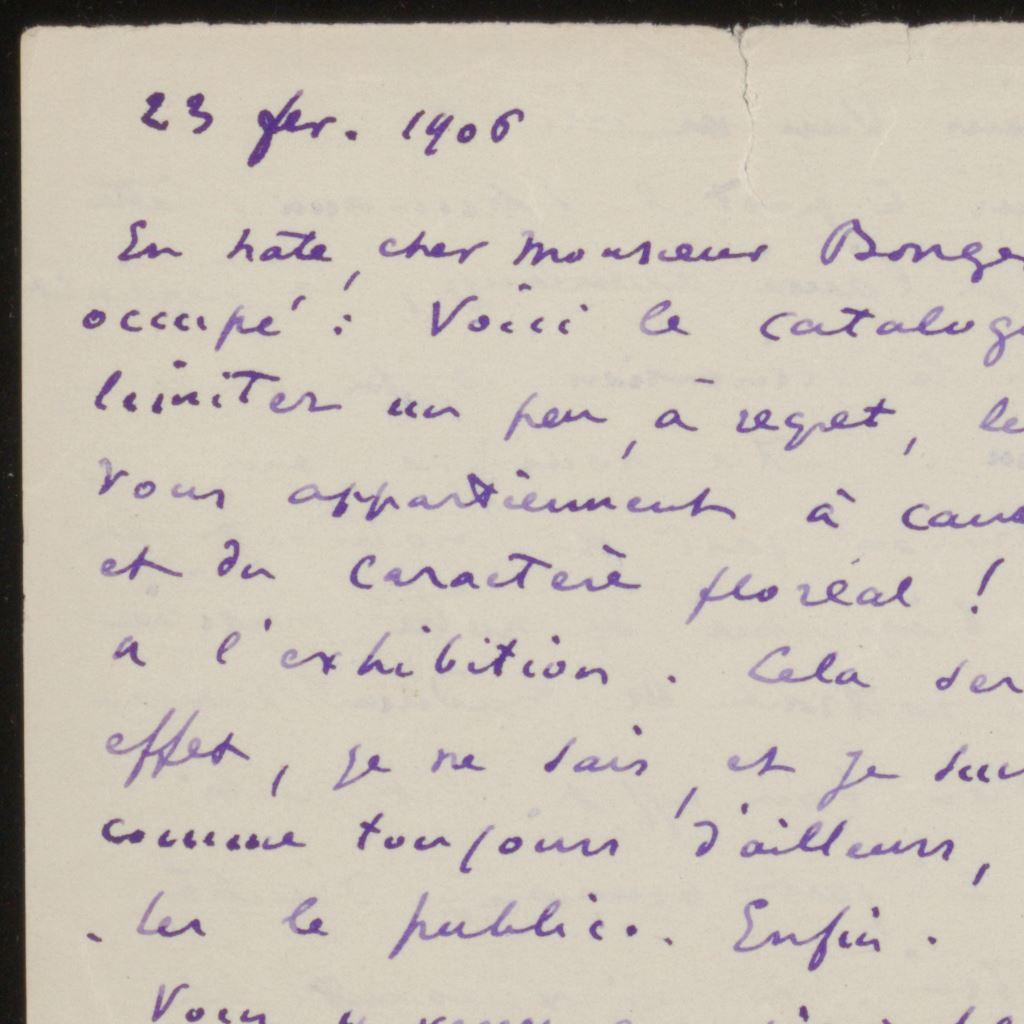 23 fev. 1906
En hate, cher Monsieur Bonge
occupé : Voici le catalog
limiter un peu, à regret, le
vous appartiennent à cau
et du caractère floréal !
a l'exhibition. Cela ser
effet, je ne sais, et je sui
comme toujours d'ailleurs,
ter le public.. Enfin.
Vous